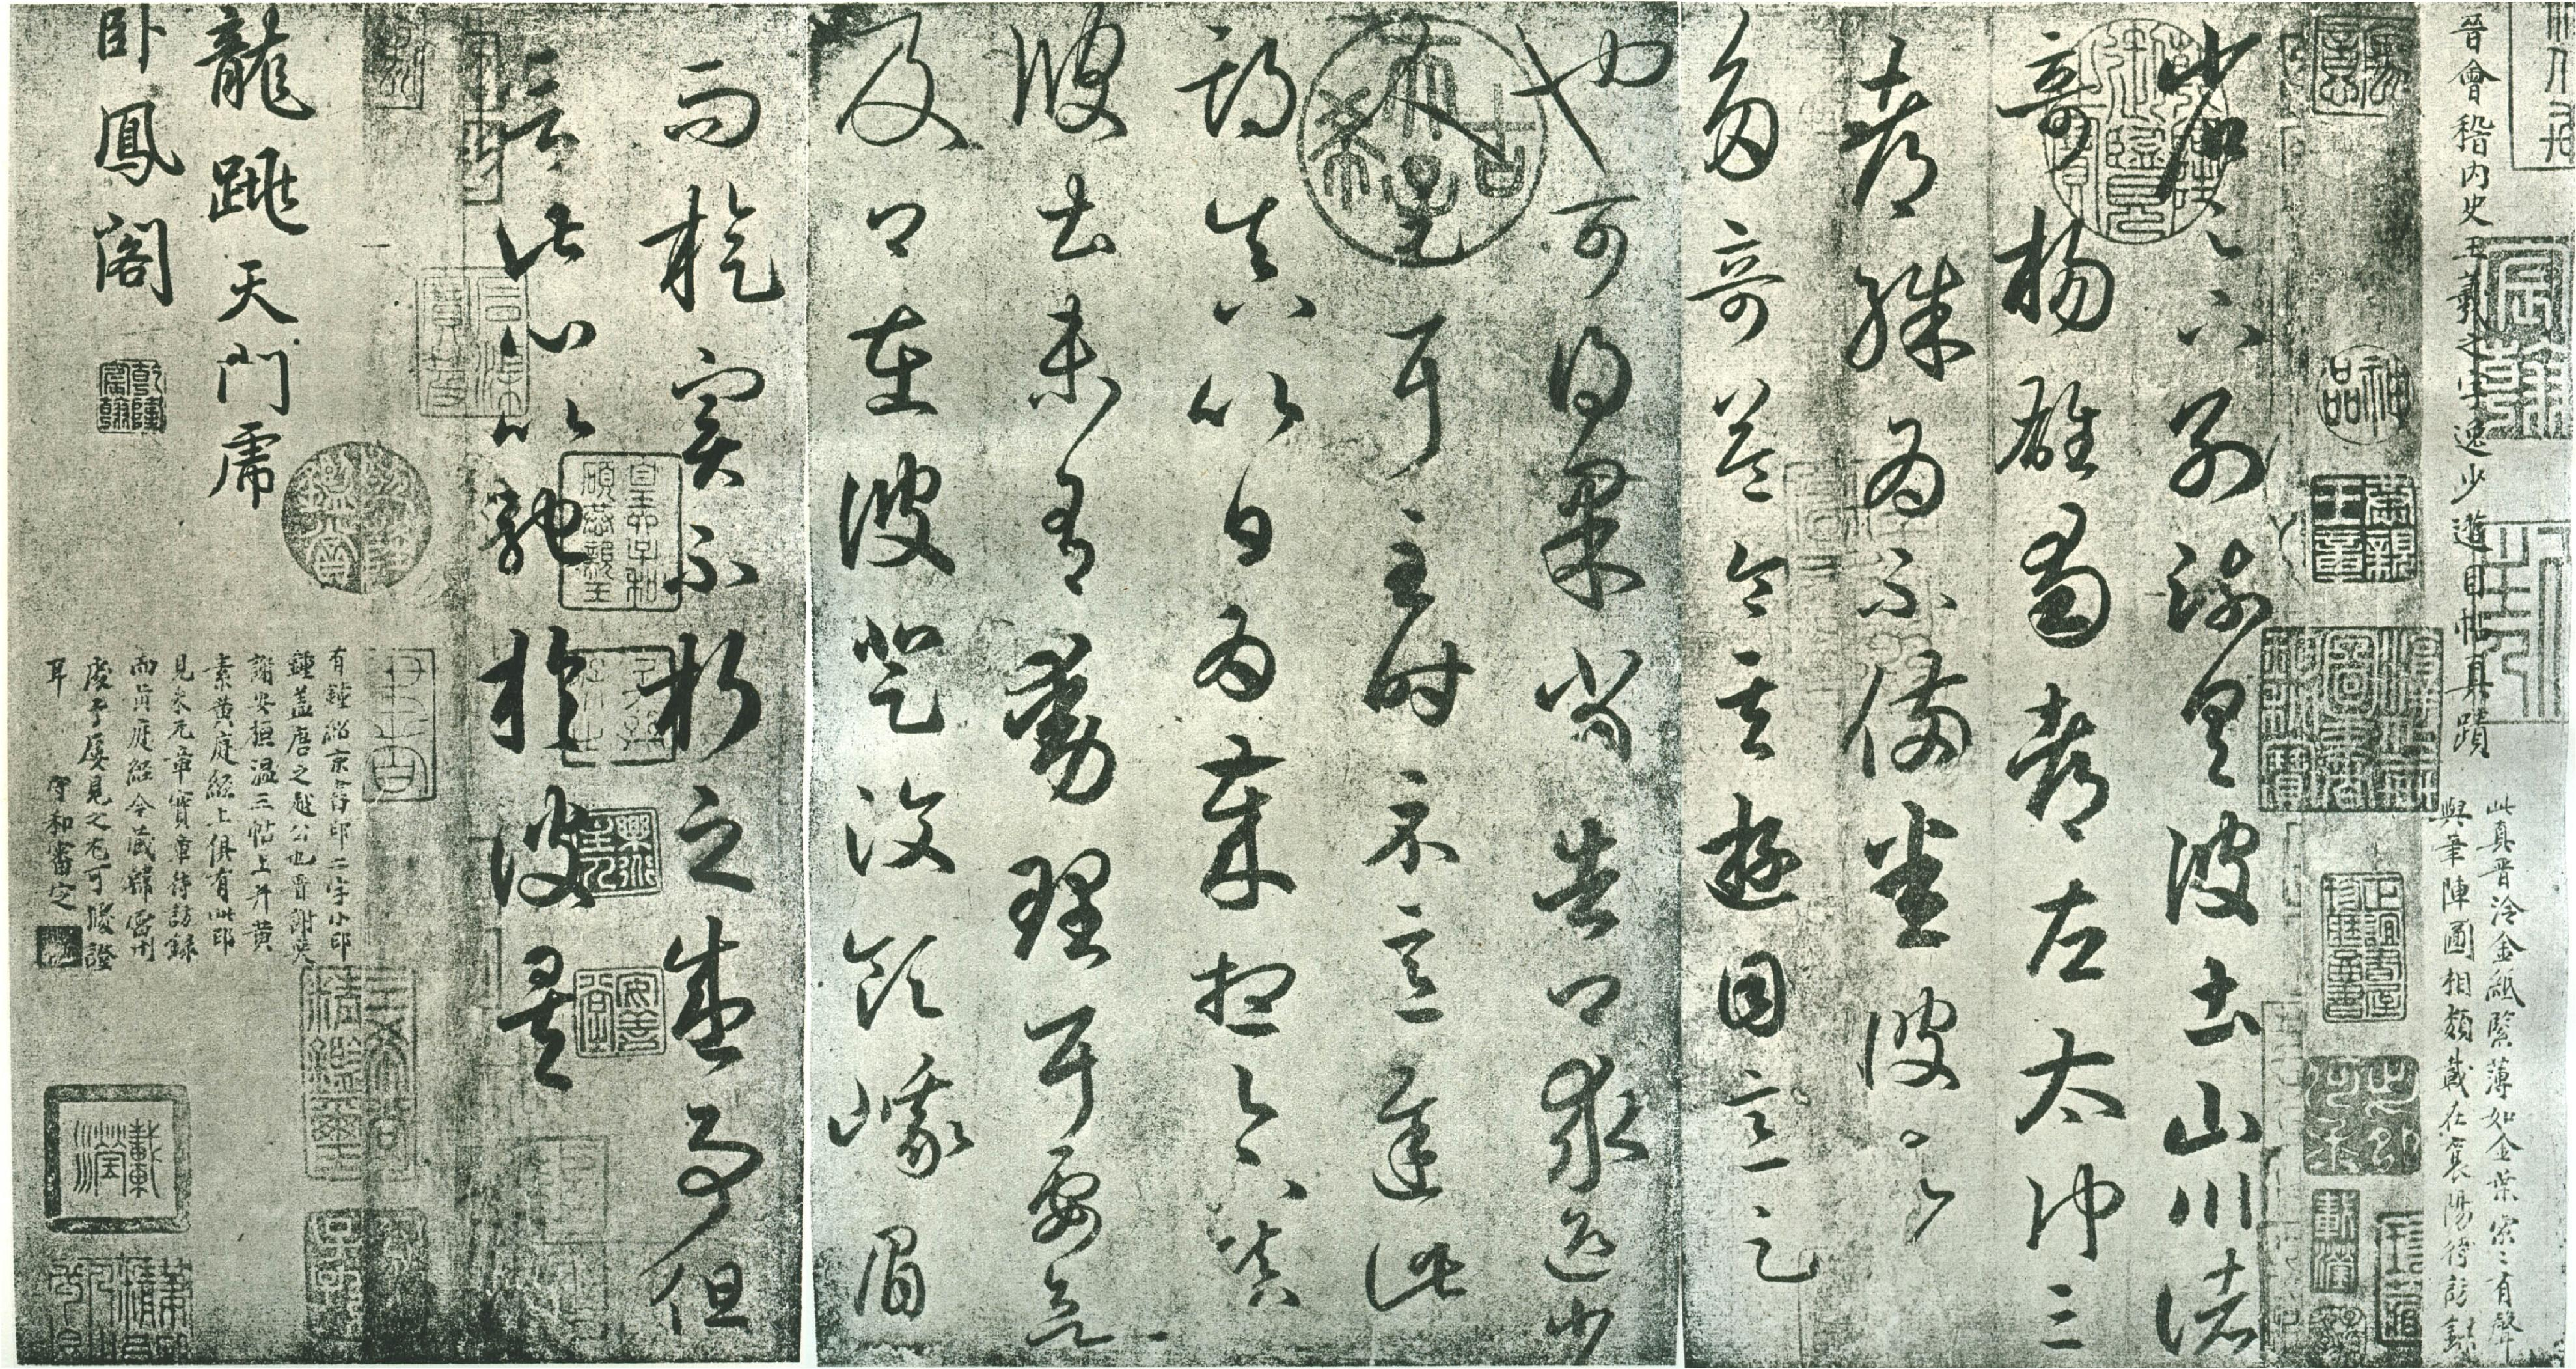 晉會稽內史王羲之字逸少遊目帖真蹟
此真晉冷金紙緊薄如金葉索〻有聲
與筆陣圖相類載在襄陽待訪錄
省足下別疏具彼土山川諸
奇揚雄蜀都左太沖三
都殊為不備悉彼故
多奇益令其遊目意足
也可得果當告卿求迎少
人足耳至時示意遲此
期真以日為歲想足下鎮
彼土未有動理耳要欲
及卿在彼登汶領峨眉
而旋實不朽之盛事但
言此心以馳於彼矣
龍跳天門虎
臥鳳閣
有鍾紹京書印二字小印
鍾蓋唐之越公也晉謝奕
謝安桓溫三帖上并黃
素黃庭經上俱有此印
見米元章寶章待訪錄
而黃庭經今藏韓
予屢見之尤可據證
耳
守和審定
神品
載瀅